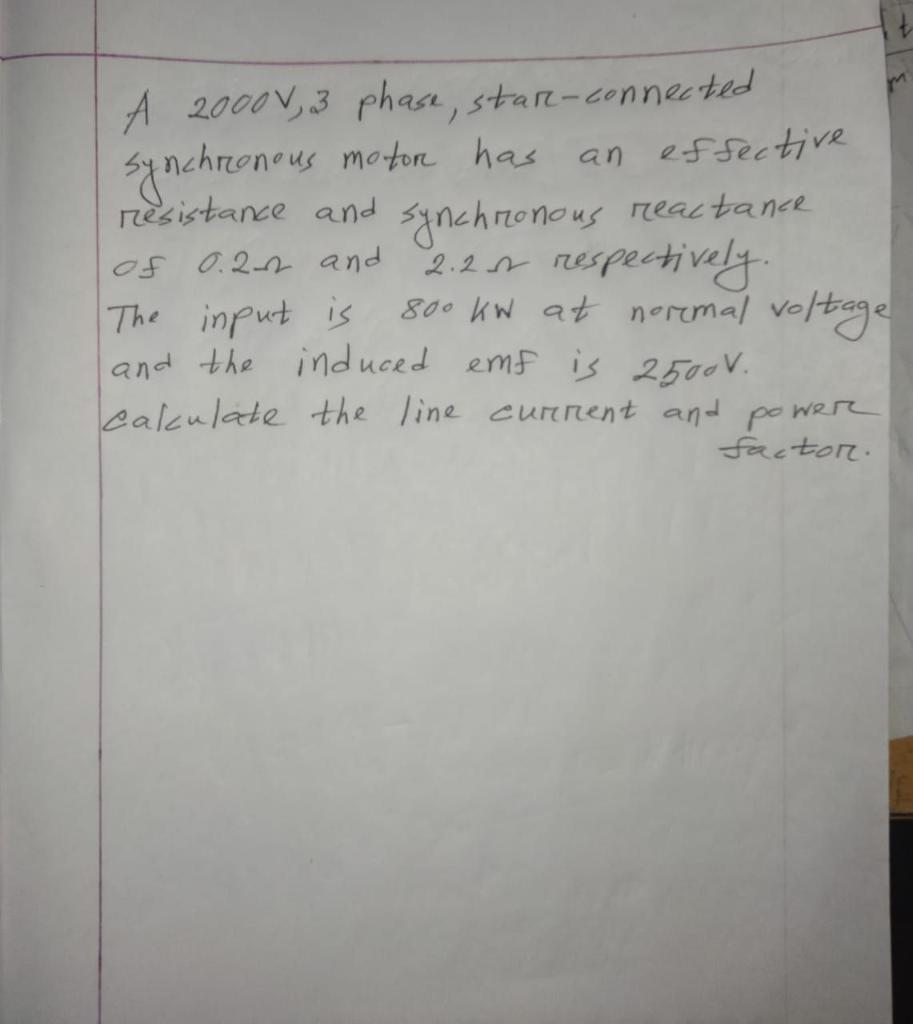 A 2000V, 3 phase, star-connected
synchronous motor has an effective
resistance and synchronous reactance
of 0.2Ω and 2.2Ω respectively.
The input is 800 kW at normal voltage
and the induced emf is 2500V.
Calculate the line current and power
factor.
t
m